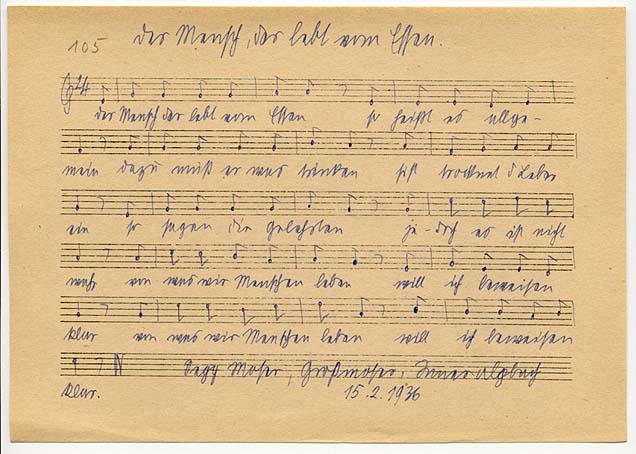 105 Der Mensch, der lebt vom Essen.
2/4
der Mensch der lebt vom Essen so heißt es allge-
mein dazu muß er was trinken sist trocknet d Leber
ein so sagen die Gelehrten je-doch es ist nicht
wahr von was wir Menschen leben will ich beweisen
klar von was wir Menschen leben will ich beweisen
Moser, Großmoser, Inneralpbach
klar. 15.2.1936